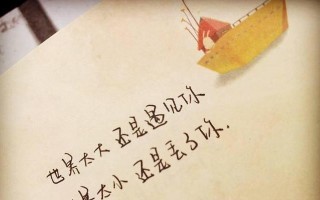 世界太大 还是遇见你
界太小 还是丢了你.